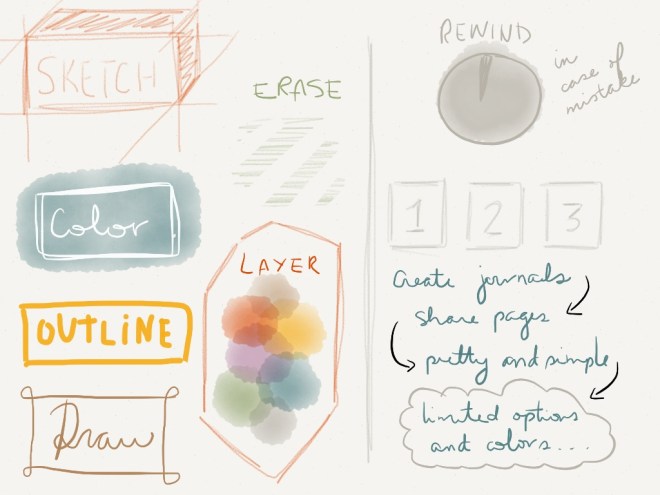 SKETCH
ERASE
Color
LAYER
OUTLINE
Draw
REWIND
in
case of
mistake
1 2 3
Create journals
share pages
pretty and simple
limited options
and colors....